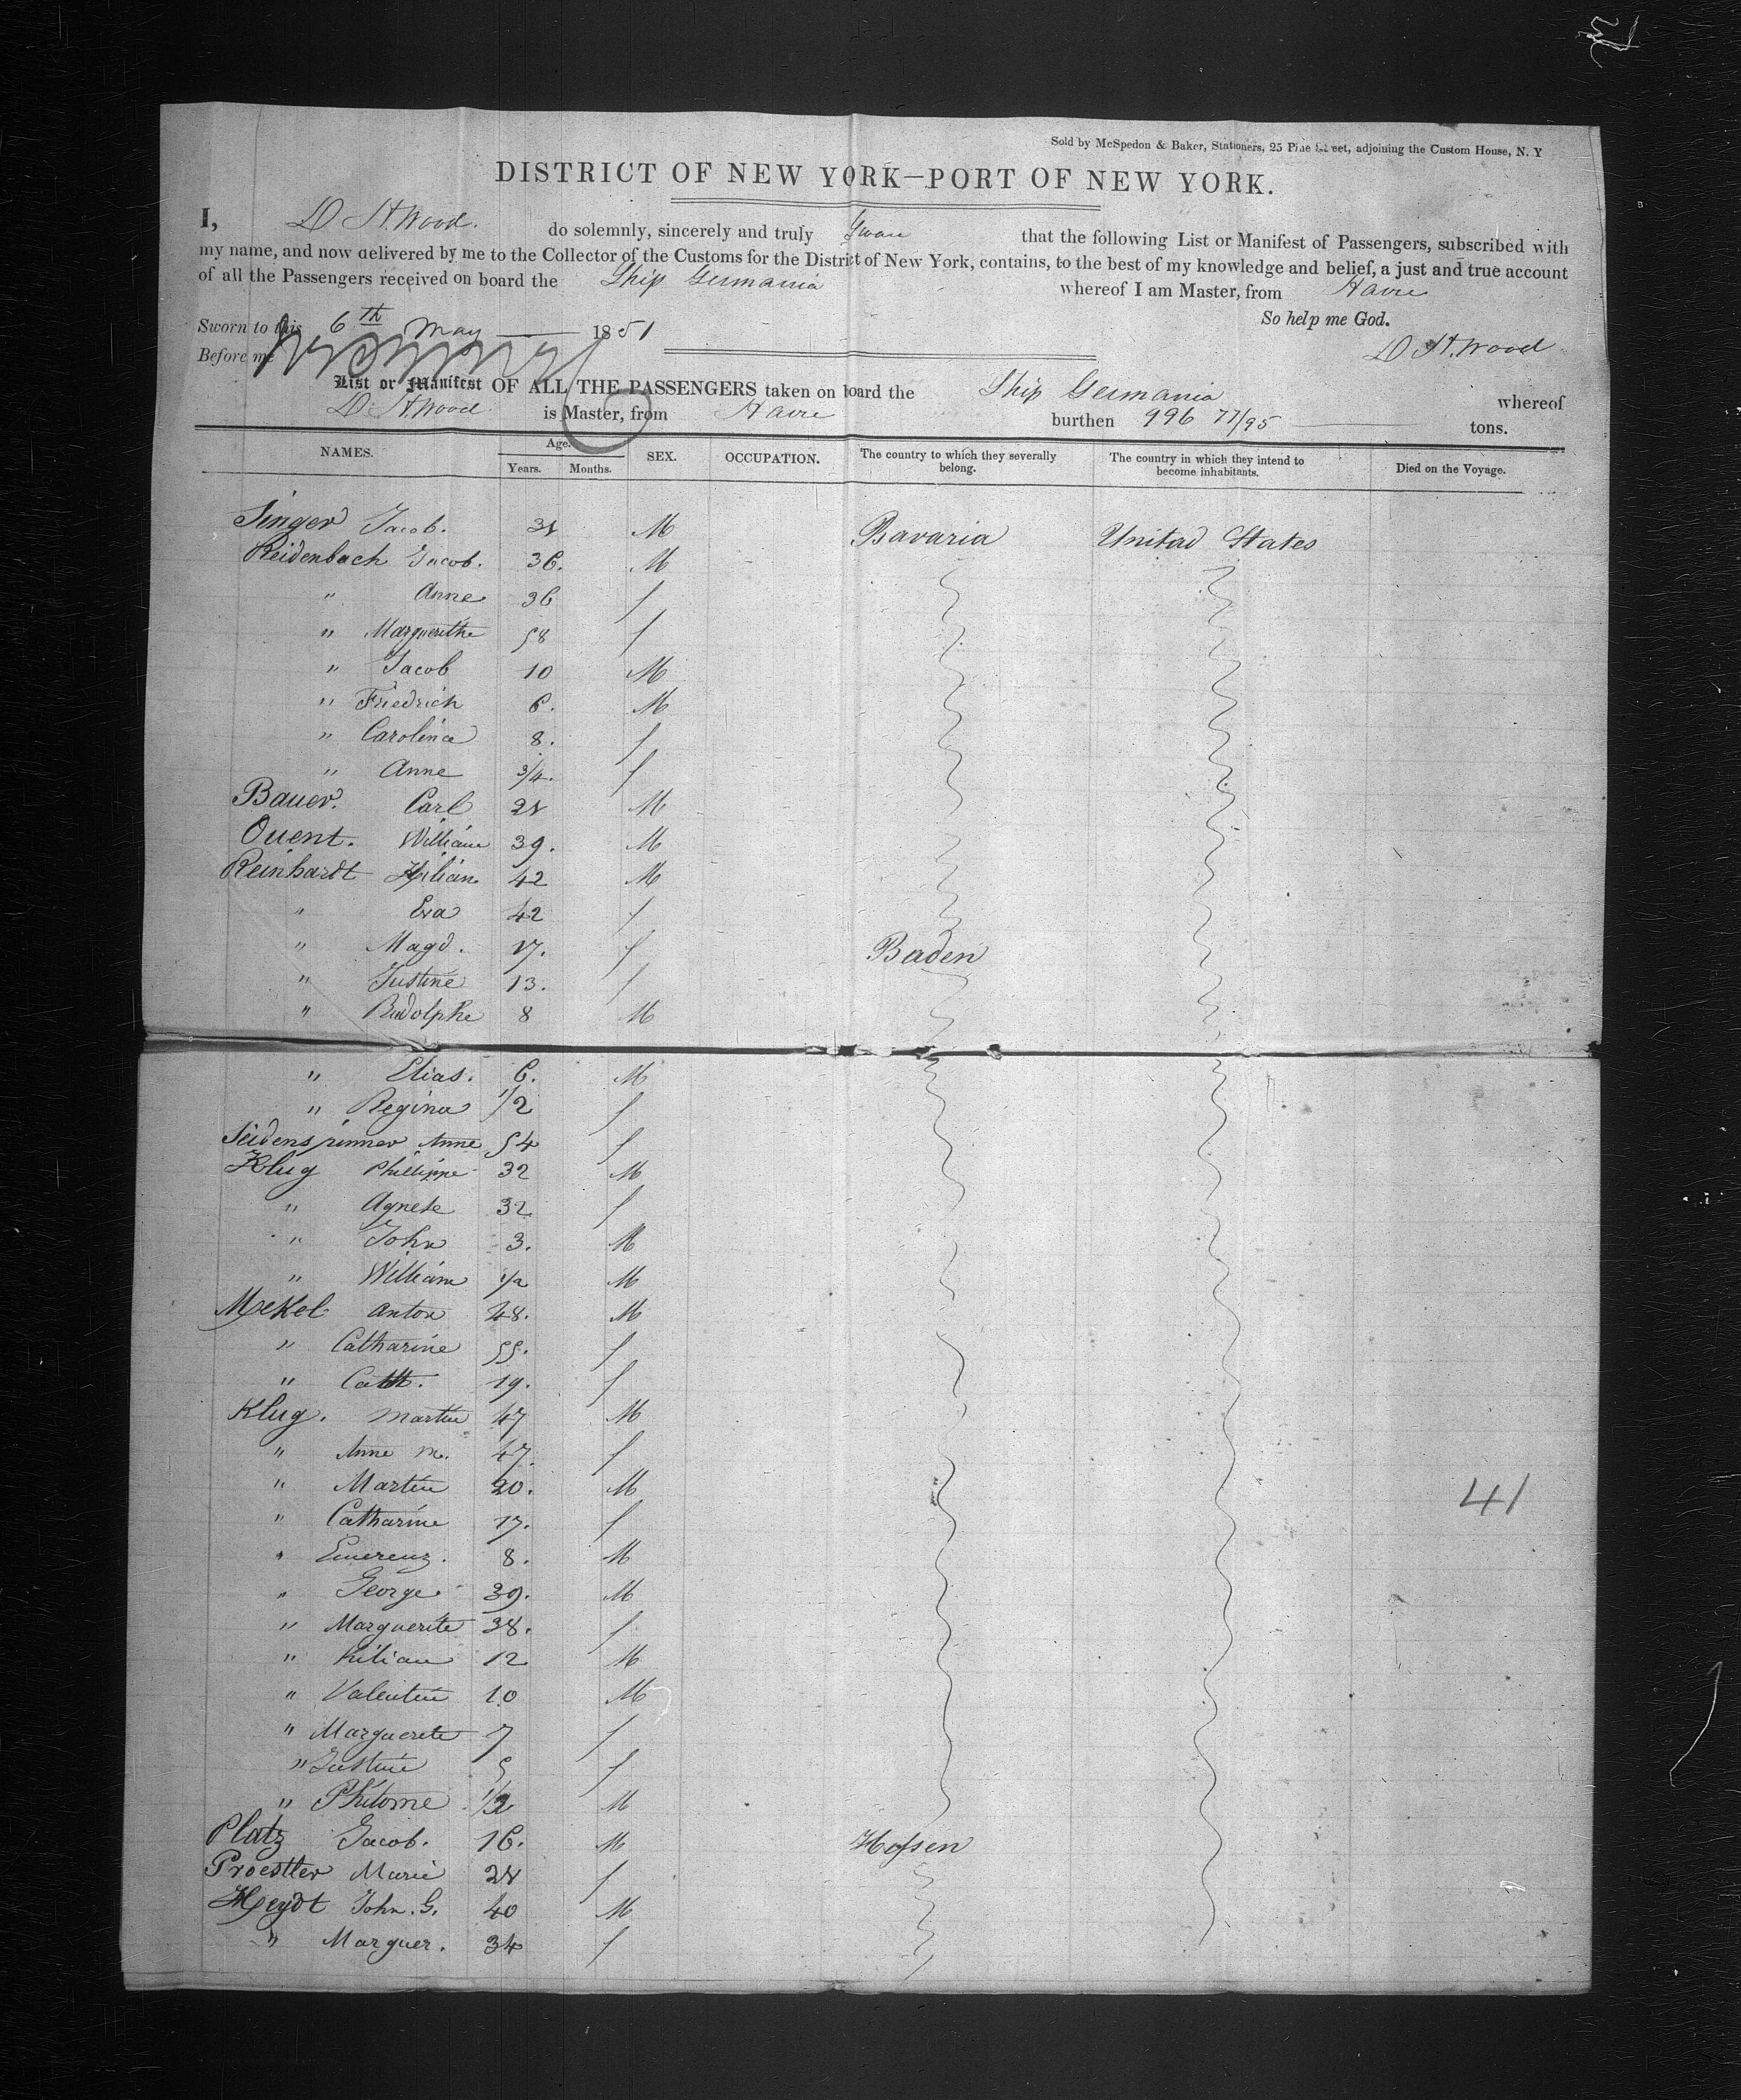 Sold by McSpedon & Baker, Stationers, 25 Pine Street, adjoining the Custom House, N. Y
DISTRICT OF NEW YORK—PORT OF NEW YORK.
I, D. H. Wood. do solemnly, sincerely and truly Swear that the following List or Manifest of Passengers, subscribed with
my name, and now delivered by me to the Collector of the Customs for the District of New York, contains, to the best of my knowledge and belief, a just and true account
of all the Passengers received on board the Ship Germania whereof I am Master, from Havre
So help me God.
Sworn to this 6th May 1851
D. H. Wood
Before me
List or Manifest OF ALL THE PASSENGERS taken on board the Ship Germania whereof
D. H. Wood is Master, from Havre burthen 996 77/95 tons.
NAMES. Age. Years. Months. SEX. OCCUPATION. The country to which they severally belong. The country in which they intend to become inhabitants. Died on the Voyage.
Singer Jacob. M Bavaria United States
Reidenbach Jacob. 36. M
" Anne 36 f
" Marguerithe 58 f
" Jacob 10 M
" Friedrich 6. M
" Carolina 8. f
" Anne 3/4. f
Bauer. Carl M
Quent. William 39. M
Reinhardt Kilian 42 M
" Eva 42 f
" Magd. 17. f Baden
" Justine 13. f
" Rudolphe 8 M
" Elias. 6. M
" Regina 1/2 f
Seidenspinner Anne 54 f
Klug Phillippe 32 M
" Agnete 32 f
" John 3. M
" William 1/2 M
Mekel Anton 48. M
" Catharine 55. f
" Cath. 19. f
Klug. Martin 47 M
" Anne M. 47. f
" Martin 20. M
" Catharine 17. f
41
" Emerenz. 8. M
" George 39. M
" Marguerite 38. f
" Kilian 12 M
" Valentin 10 M
" Marguerete 7 f
" Justine 5 f
" Philome 1/2 M
Platz Jacob. 16. M Hessen
Proestler Marie 28 f
Heydt John. G. 40 M
" Marguer. 34 f